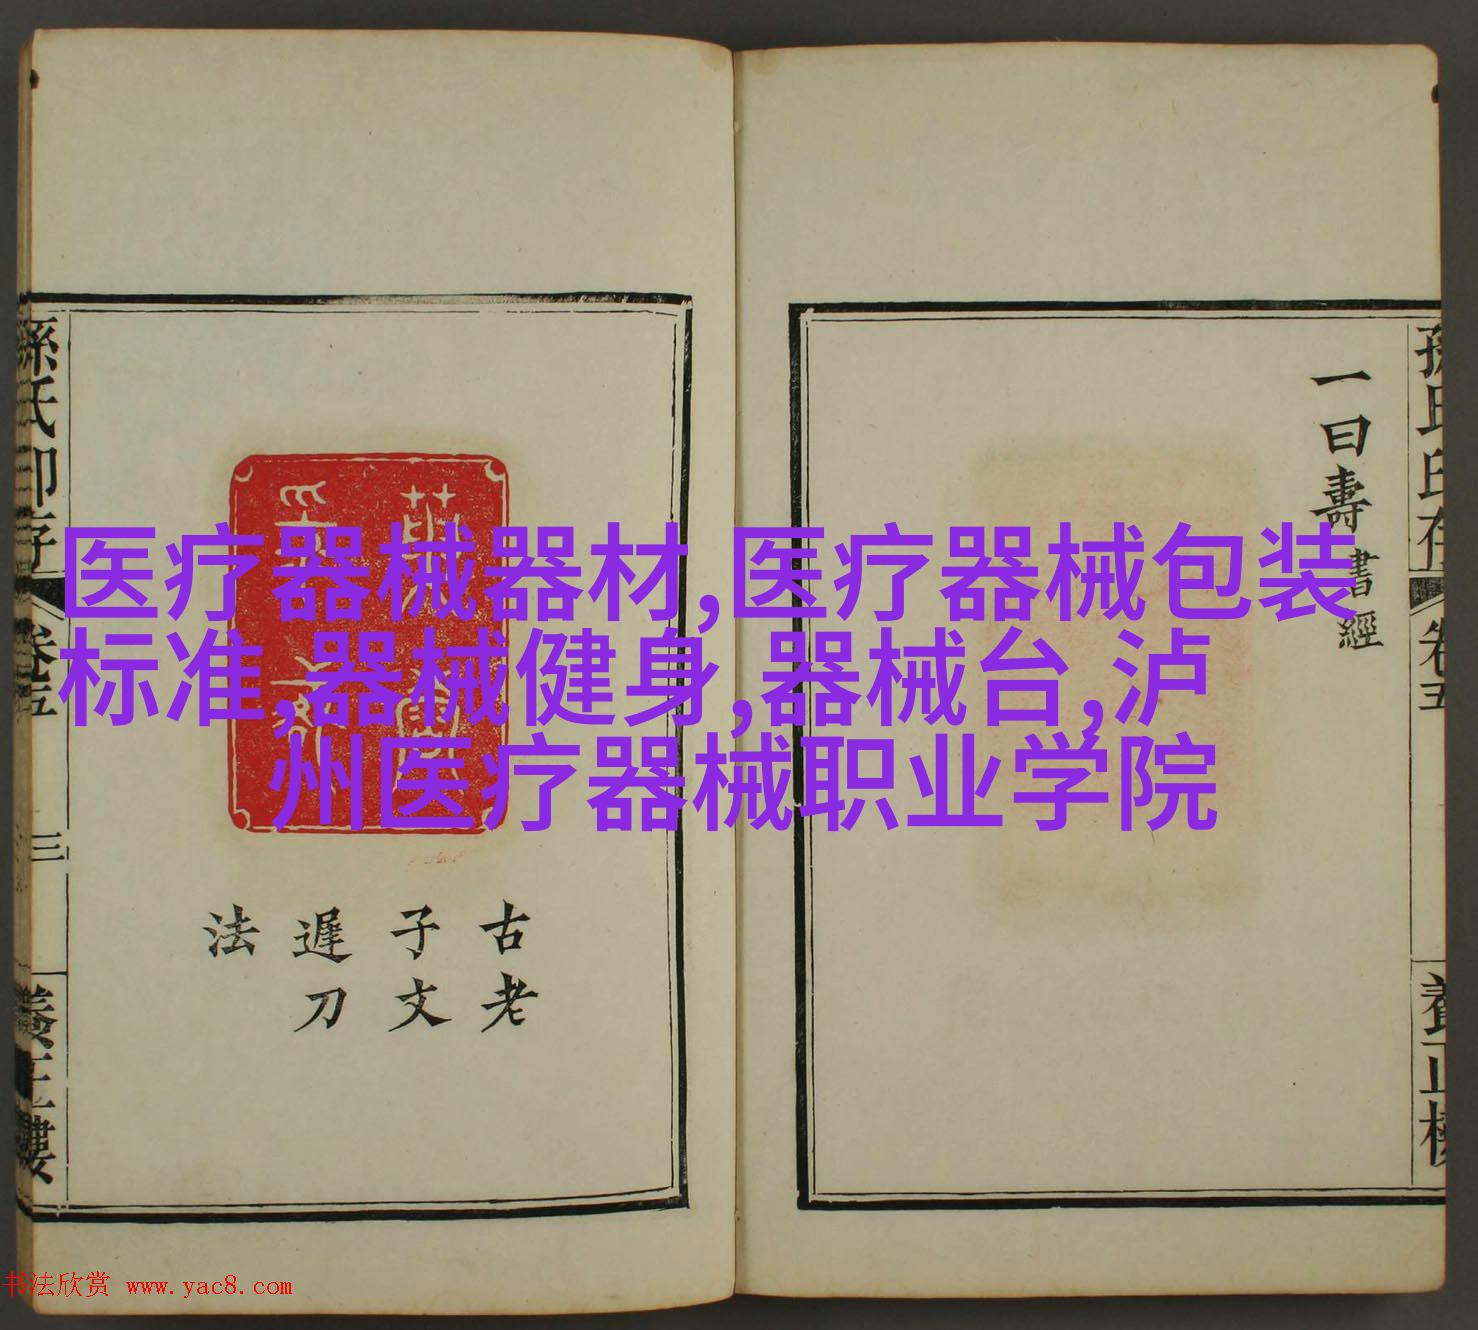 医疗器械器材,医疗器械包装
标准,器械健身,器械台,泸
州医疗器械职业学院
一曰壽書經
孫氏印存
卷五
養正樓
古老
子文
遲刀
法
孫氏印存
卷五
三
養正樓
书法欣赏 www.yac8.com